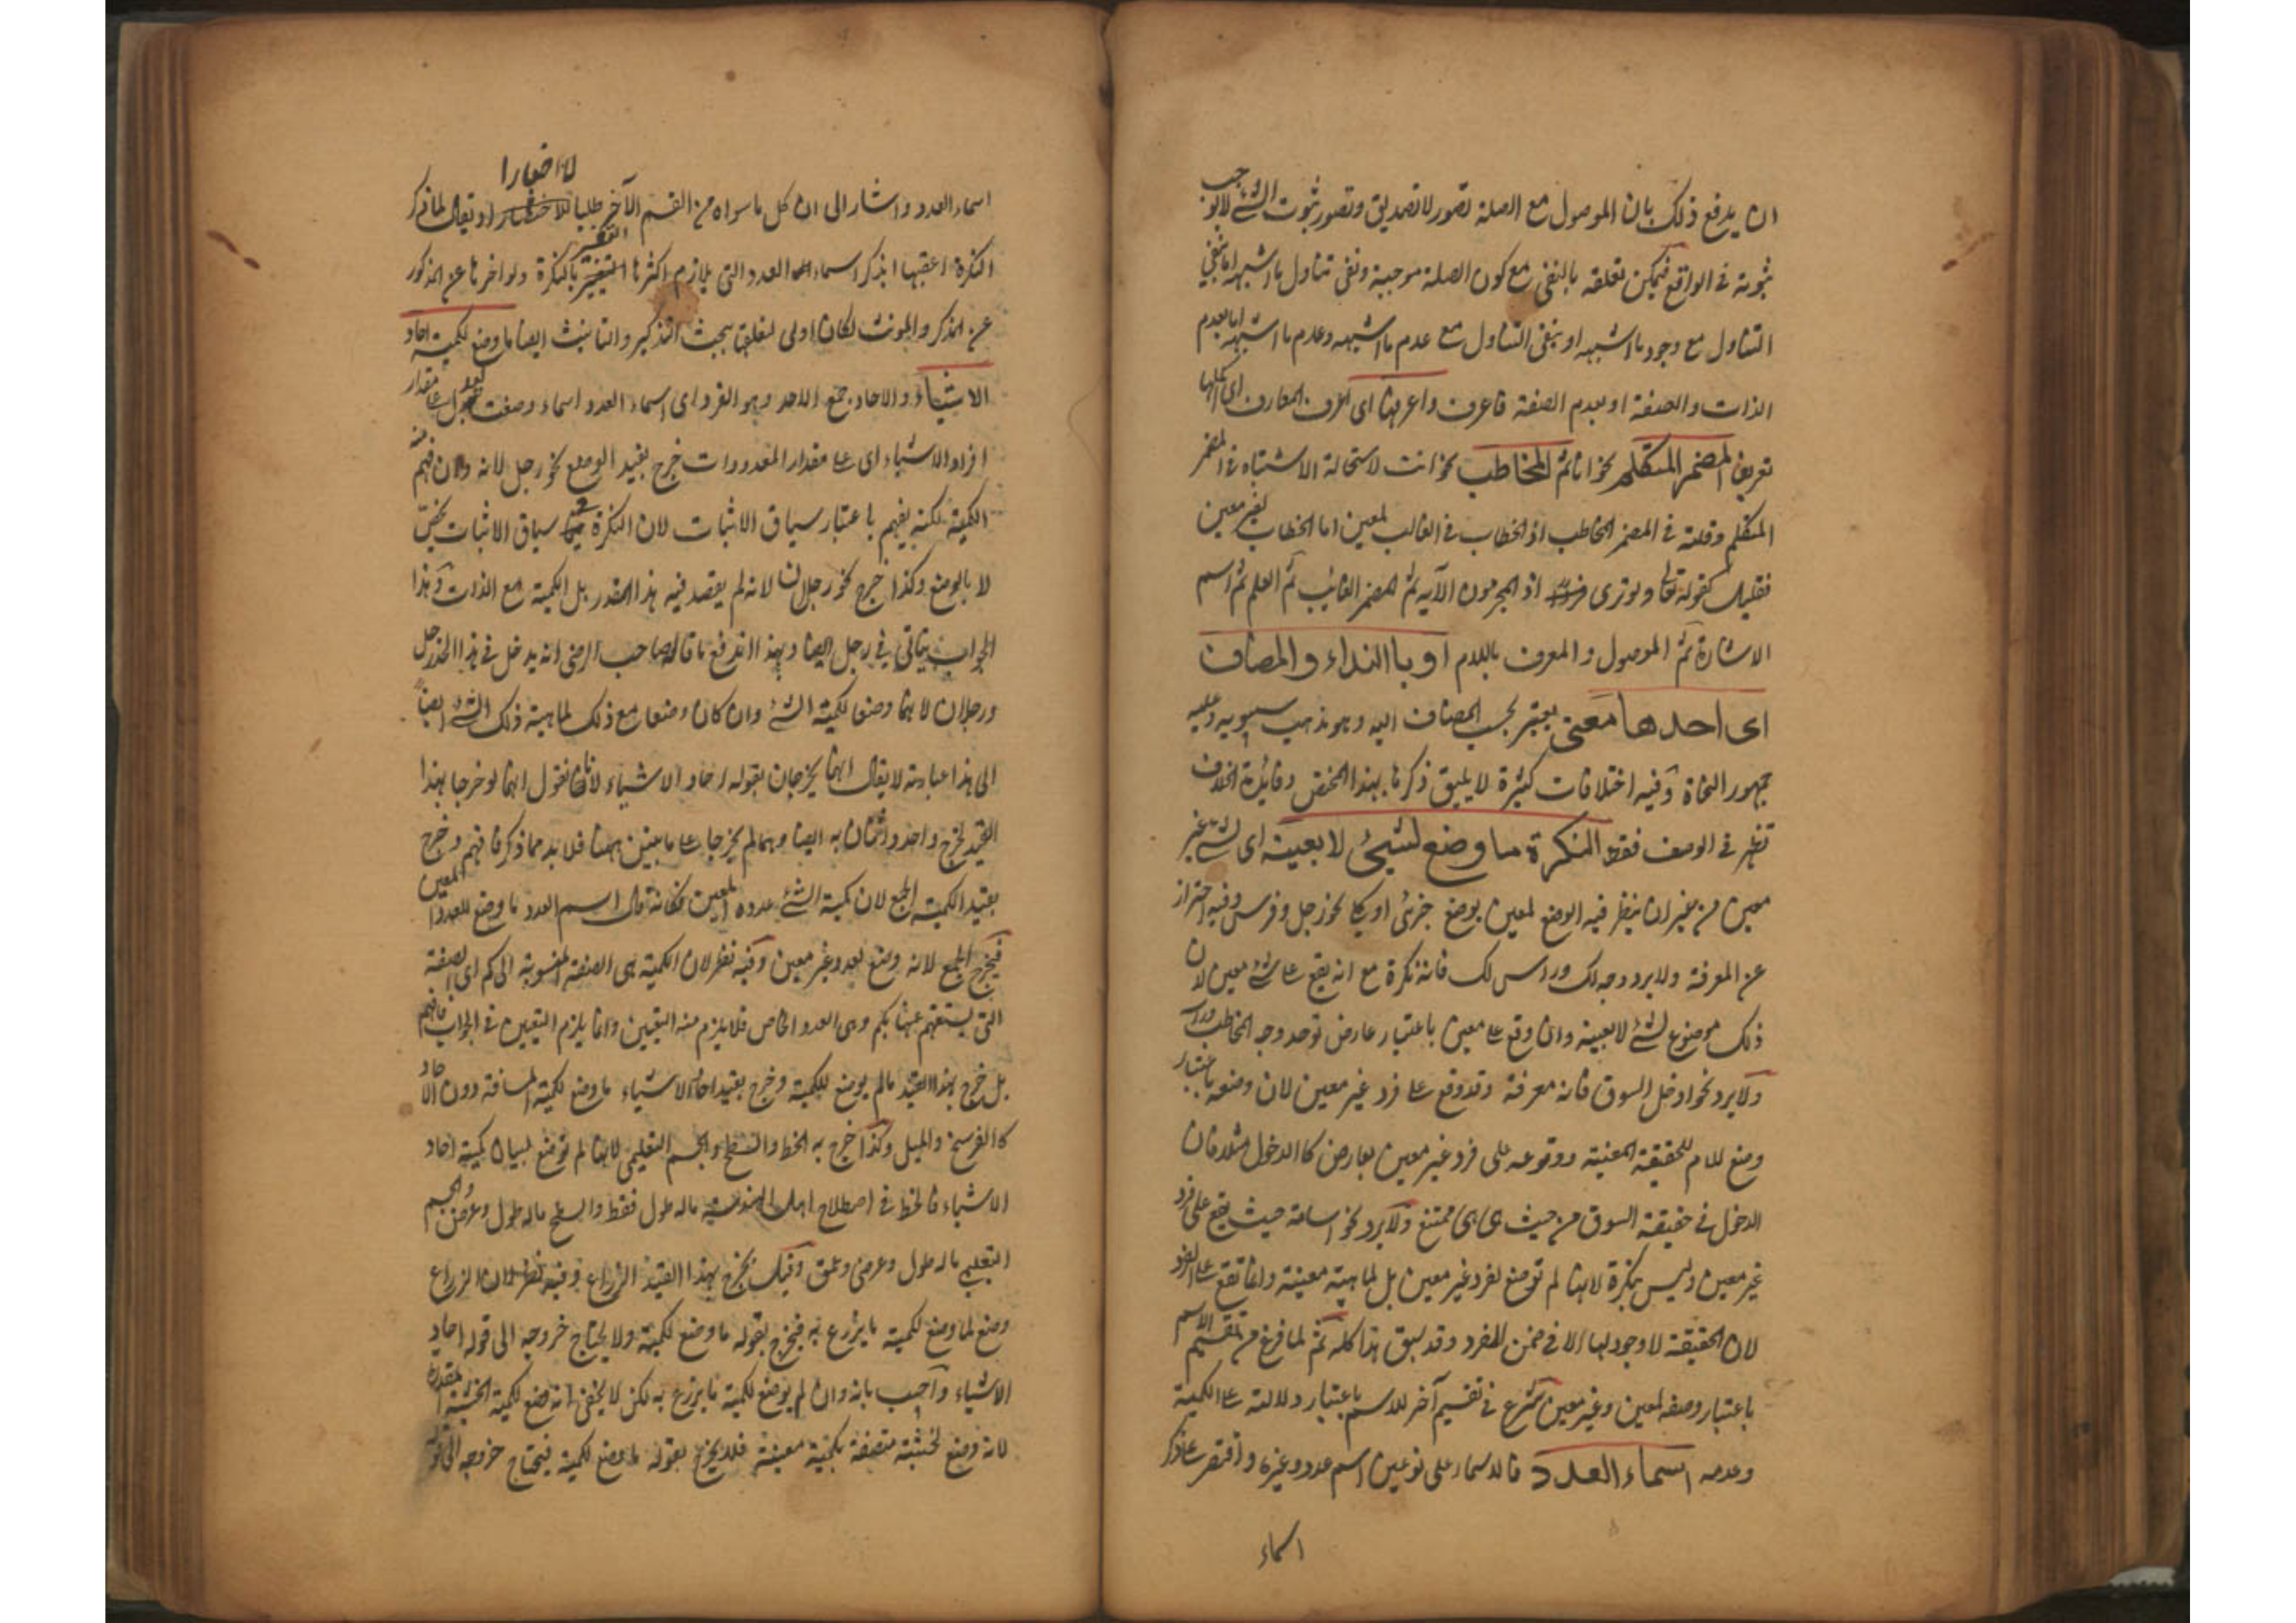 ان يدفع ذلك بان الموصول مع الصلة تصور لا تصديق وتصور ثبوت الشئ لا يوجب
ثبوته في الواقع فيمكن تعلقه بالنفى مع كون الصلة موجبة ونفى تناول ما اشبهه اما بنفي
التناول مع وجود ما اشبهه او بنفى التناول مع عدم ما اشبهه وعدم ما اشبهه اما بعدم
الذات والصفة او بعدم الصفة فاعرف واعرفها اى اعرف المعارف اى اكملها
تعريفا المضمر المتكلم نحو انا ثم المخاطب نحو انت لاستحالة الاشتباه في المضمر
المتكلم وقلته في المضمر المخاطب اذ الخطاب في الغالب لمعين اما الخطاب لغير معين
فقليل كقوله تعالى ولو ترى اذ المجرمون الآية ثم المضمر الغائب ثم العلم ثم اسم
الاشارة ثم الموصول والمعرف باللام او با النداء والمضاف
اى احدها معنى يعتبر بحسب المضاف اليه وهو مذهب سيبويه وعليه
جمهور النحاة وفيه اختلافات كثيرة لا يليق ذكرها بهذا المختصر وفائدة الخلاف
تظهر في الوصف فقط النكرة ما وضع لشيئ لا بعينه اى لشئ غير
معين من غير ان ينظر فيه الوضع لمعين بوضع جزئى او كلى نحو رجل وفرس وفيه احتراز
عن المعرفة ولا يرد وجه لك وراس لك فانه نكرة مع انه يقع على شئ معين لان
ذلك موضوع لشئ لا بعينه وان وقع على معين باعتبار عارض توحد وجه المخاطب وراسه
ولا يرد نحو ادخل السوق فانه معرفة وقد وقع على فرد غير معين لان وضعه باعتبار
وضع للام للحقيقة المعينة ووقوعه على فرد غير معين بعارض كا الدخول مثلا فان
الدخول في حقيقة السوق من حيث هى هى ممتنع ولا يرد نحو اسامة حيث يقع على فرد
غير معين وليس بنكرة لانها لم توضع لفرد غير معين بل لماهية معينة وانما تقع على الفرد
لان الحقيقة لا وجود لها الا في ضمن المفرد وقد سبق هذا كله ثم لما فرغ من تقسيم الاسم
باعتبار وصفه لمعين وغير معين شرع في تقسيم آخر للاسم باعتبار دلالته على الكمية
وعدمه اسماء العدد فالاسماء على نوعين اسم عدد وغيره واقتصر على ذكر
اسماء
لا اختصارا
اسماء العدد واشار الى ان كل ما سواه من القسم الآخر طلبا للاختصار او يقال لما ذكر
النكرة اعقبها بذكر اسماء العدد التى يلازم اكثرها التفسير بالنكرة ولو اخرها عن المذكور
عن المذكر والمونث لكان اولى لتعلقها ببحث التذكير والتانيث ايضا ما وضع لكمية احاد
الاشياء والاحاد جمع الاحد وهو الفرد اى اسماء العدد اسماء وضعت لتدل على مقدار
افراد الاشياء اى على مقدار المعدودات خرج بقيد الوضع نحو رجل لانه وان فهم منه
الكمية لكنه يفهم باعتبار سياق الاثبات لان النكرة في سياق الاثبات يخص
لا بالوضع وكذا خرج نحو رجلان لانه لم يقصد فيه هذا القدر بل الكمية مع الذات وهذا
الجواب يتاتى في رجل ايضا وبهذا اندفع ما قاله صاحب الرضى انه يدخل في هذا الحد رجل
ورجلان لانهما وضعا لكمية الشئ وان كان وضعا مع ذلك لماهية ذلك الشئ ايضا
الى هذا عبارته لا يقال انهما يخرجان بقوله احاد الاشياء لانا نقول انهما لو خرجا بهذا
القيد لخرج واحد واثنان به ايضا وهما لم يخرجا على ما بين ههنا فلا بد مما ذكر فافهم وخرج
بقيد الكمية الجمع لان كمية الشئ عدده المعين فكانه قال اسم العدد ما وضع للعدد المعين
فيخرج الجمع لانه وضع لعدد غير معين وفيه نظر لان الكمية هى الصفة المنسوبة الى كم اى الصفة
التى يستفهم عنها بكم وهى العدد الخاص فلا يلزم منه التعين وانما يلزم التعيين في الجواب فافهم
بل خرج بهذا القيد ما لم يوضع للكمية وخرج بقيد احاد الاشياء ما وضع لكمية المسافة دون الآحاد
كا الفرسخ والميل وكذا خرج به الخط والسطح والجسم التعليمى لانها لم توضع لبيان كمية احاد
الاشياء فالخط في اصطلاح اهل الهندسة ماله طول فقط والسطح ماله طول وعرض والجسم
التعليمي ماله طول وعرض وعمق وقيل يخرج بهذا القيد الزراع وفيه نظر لان الزراع
وضع لما وضع لكمية ما يزرع به فيخرج بقوله ما وضع لكمية ولا يحتاج خروجه الى قوله احاد
الاشياء واجيب بانه وان لم يوضع لكمية ما يزرع به لكن لا يخفى انه وضع لكمية الخشبة المقدرة
لانه وضع لخشبة متصفة بكمية معينة فلا يخرج بقوله ما وضع لكمية فيحتاج خروجه الى قوله